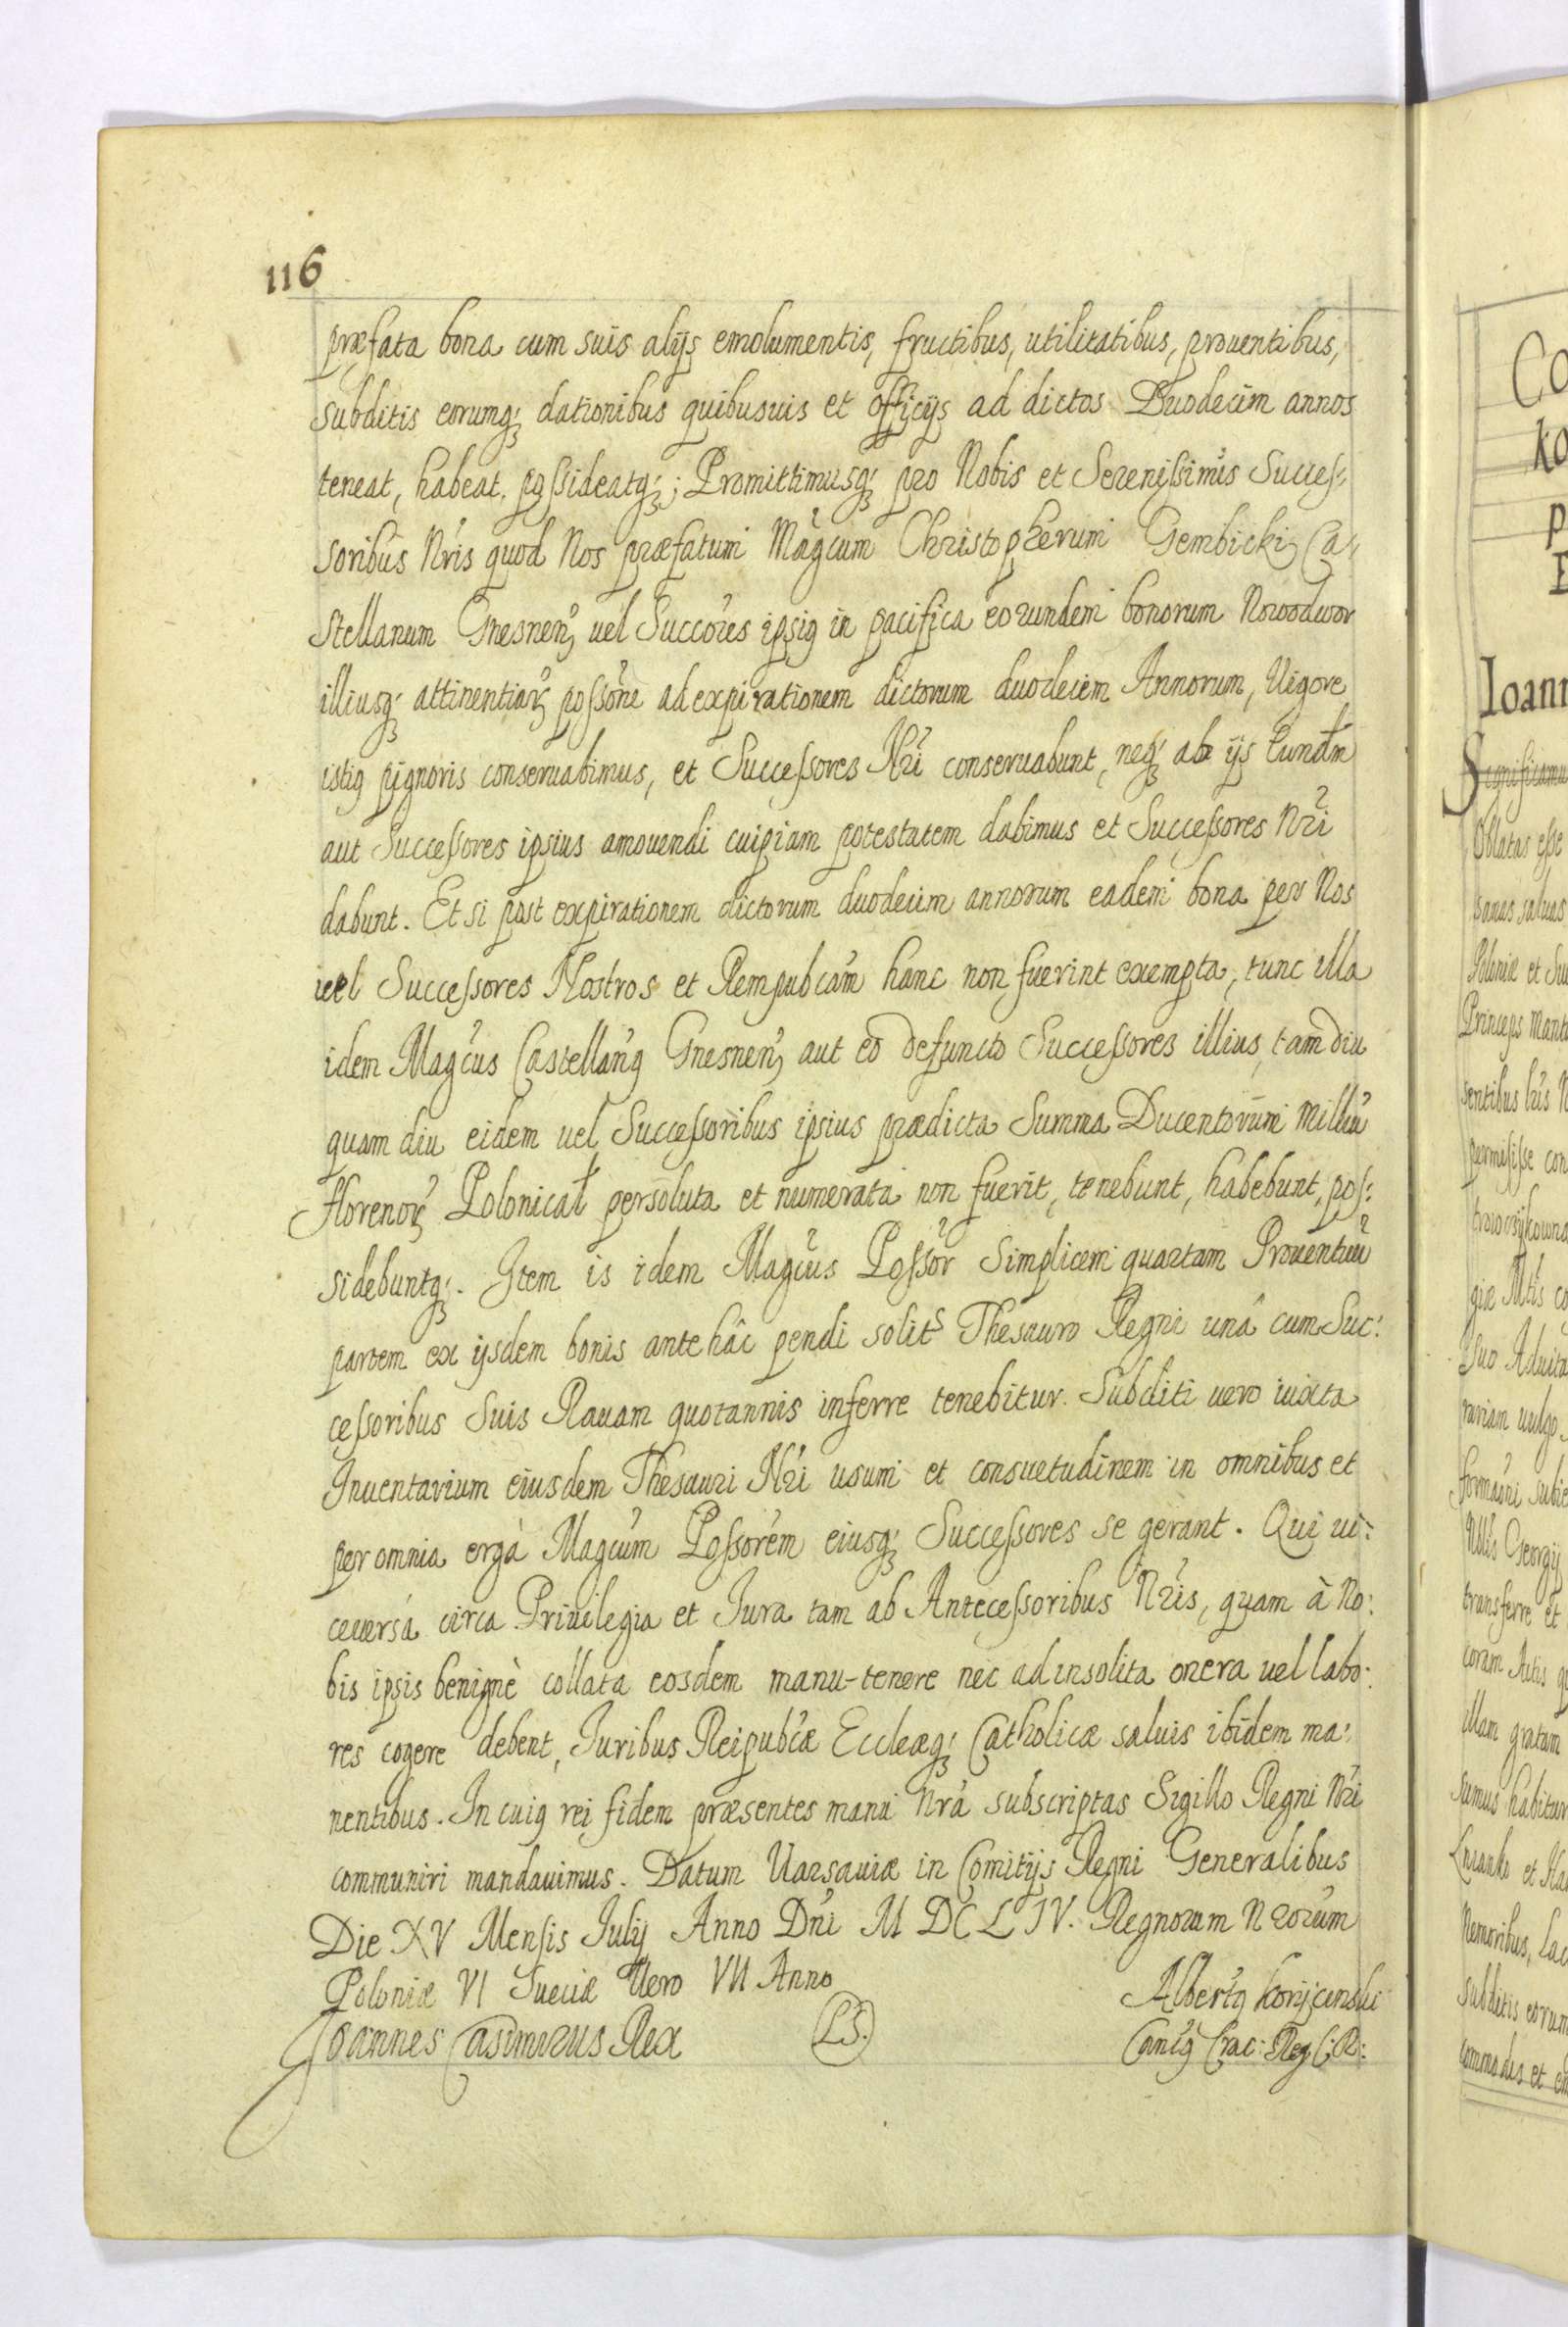 116
præfata bona cum suis alijs emolumentis, fructibus, utilitatibus, prouentibus,
subditis eorumq; dationibus quibusuis et officijs ad dictos Duodecim annos
teneat, habeat, possideatq; ; Promittimusq; pro Nobis et Serenissimis Succes:
soribus Nris quod Nos præfatum Magcum Christopherum Gembicki Ca:
stellanum Gnesnen; uel Succores ipsiq in pacifica eorundem bonorum Nowodwor
illiusq; attinentiar; possone ad expirationem dictorum duodecim Annorum, Uigore
istiq pignoris conseruabimus, et Successores Nri conseruabunt, neq; ab ijs Eundm
aut Successores ipsius amouendi cuipiam potestatem dabimus et Successores Nri
dabunt. Et si post expirationem dictorum duodecim annorum eadem bona per Nos
uel Successores Nostros et Rempubcam hanc non fuerint exempta, tunc illa
idem Magcus Castellanq Gnesnen; aut eo defuncto Successores illius, tamdiu
quam diu eidem uel Successoribus ipsius prædicta Summa Ducentorum Milliu
florenor; Polonical persoluta et numerata non fuerit, tenebunt, habebunt, pos:
sidebuntq;. Item is idem Magcus Possor Simplicem quartam Prouentuu
partem ex ijsdem bonis ante hâc pendi solit Thesauro Regni unâ cum Suc:
cessoribus Suis Rauam quotannis inferre tenebitur. Subditi uero iuxta
Inuentarium eiusdem Thesauri Nri usum et consuetudinem in omnibus et
per omnia ergà Magcum Possorem eiusq; Successores se gerant. Qui ui:
ceuersá circa Priuilegia et Iura tam ab Antecessoribus Nris, quam à No:
bis ipsis benignè collata eosdem manu-tenere nec ad insolita onera uel labo:
res cogere debent, Iuribus Reipubcæ Eccleæq; Catholicæ saluis ibidem ma:
nentibus. In cuiq rei fidem præsentes manu Nrâ subscriptas Sigillo Regni Nri
communiri mandauimus. Datum Uarsauiæ in Comitijs Regni Generalibus
Die XV Mensis Iulij Anno Dni M DC L IV. Regnorum Nrorum
Poloniæ VI Sueciæ Uero VII Anno
Ioannes Casimirus Rex
L.S.
Albertq Korijcinski
Cantq Crac: Reg C: R: